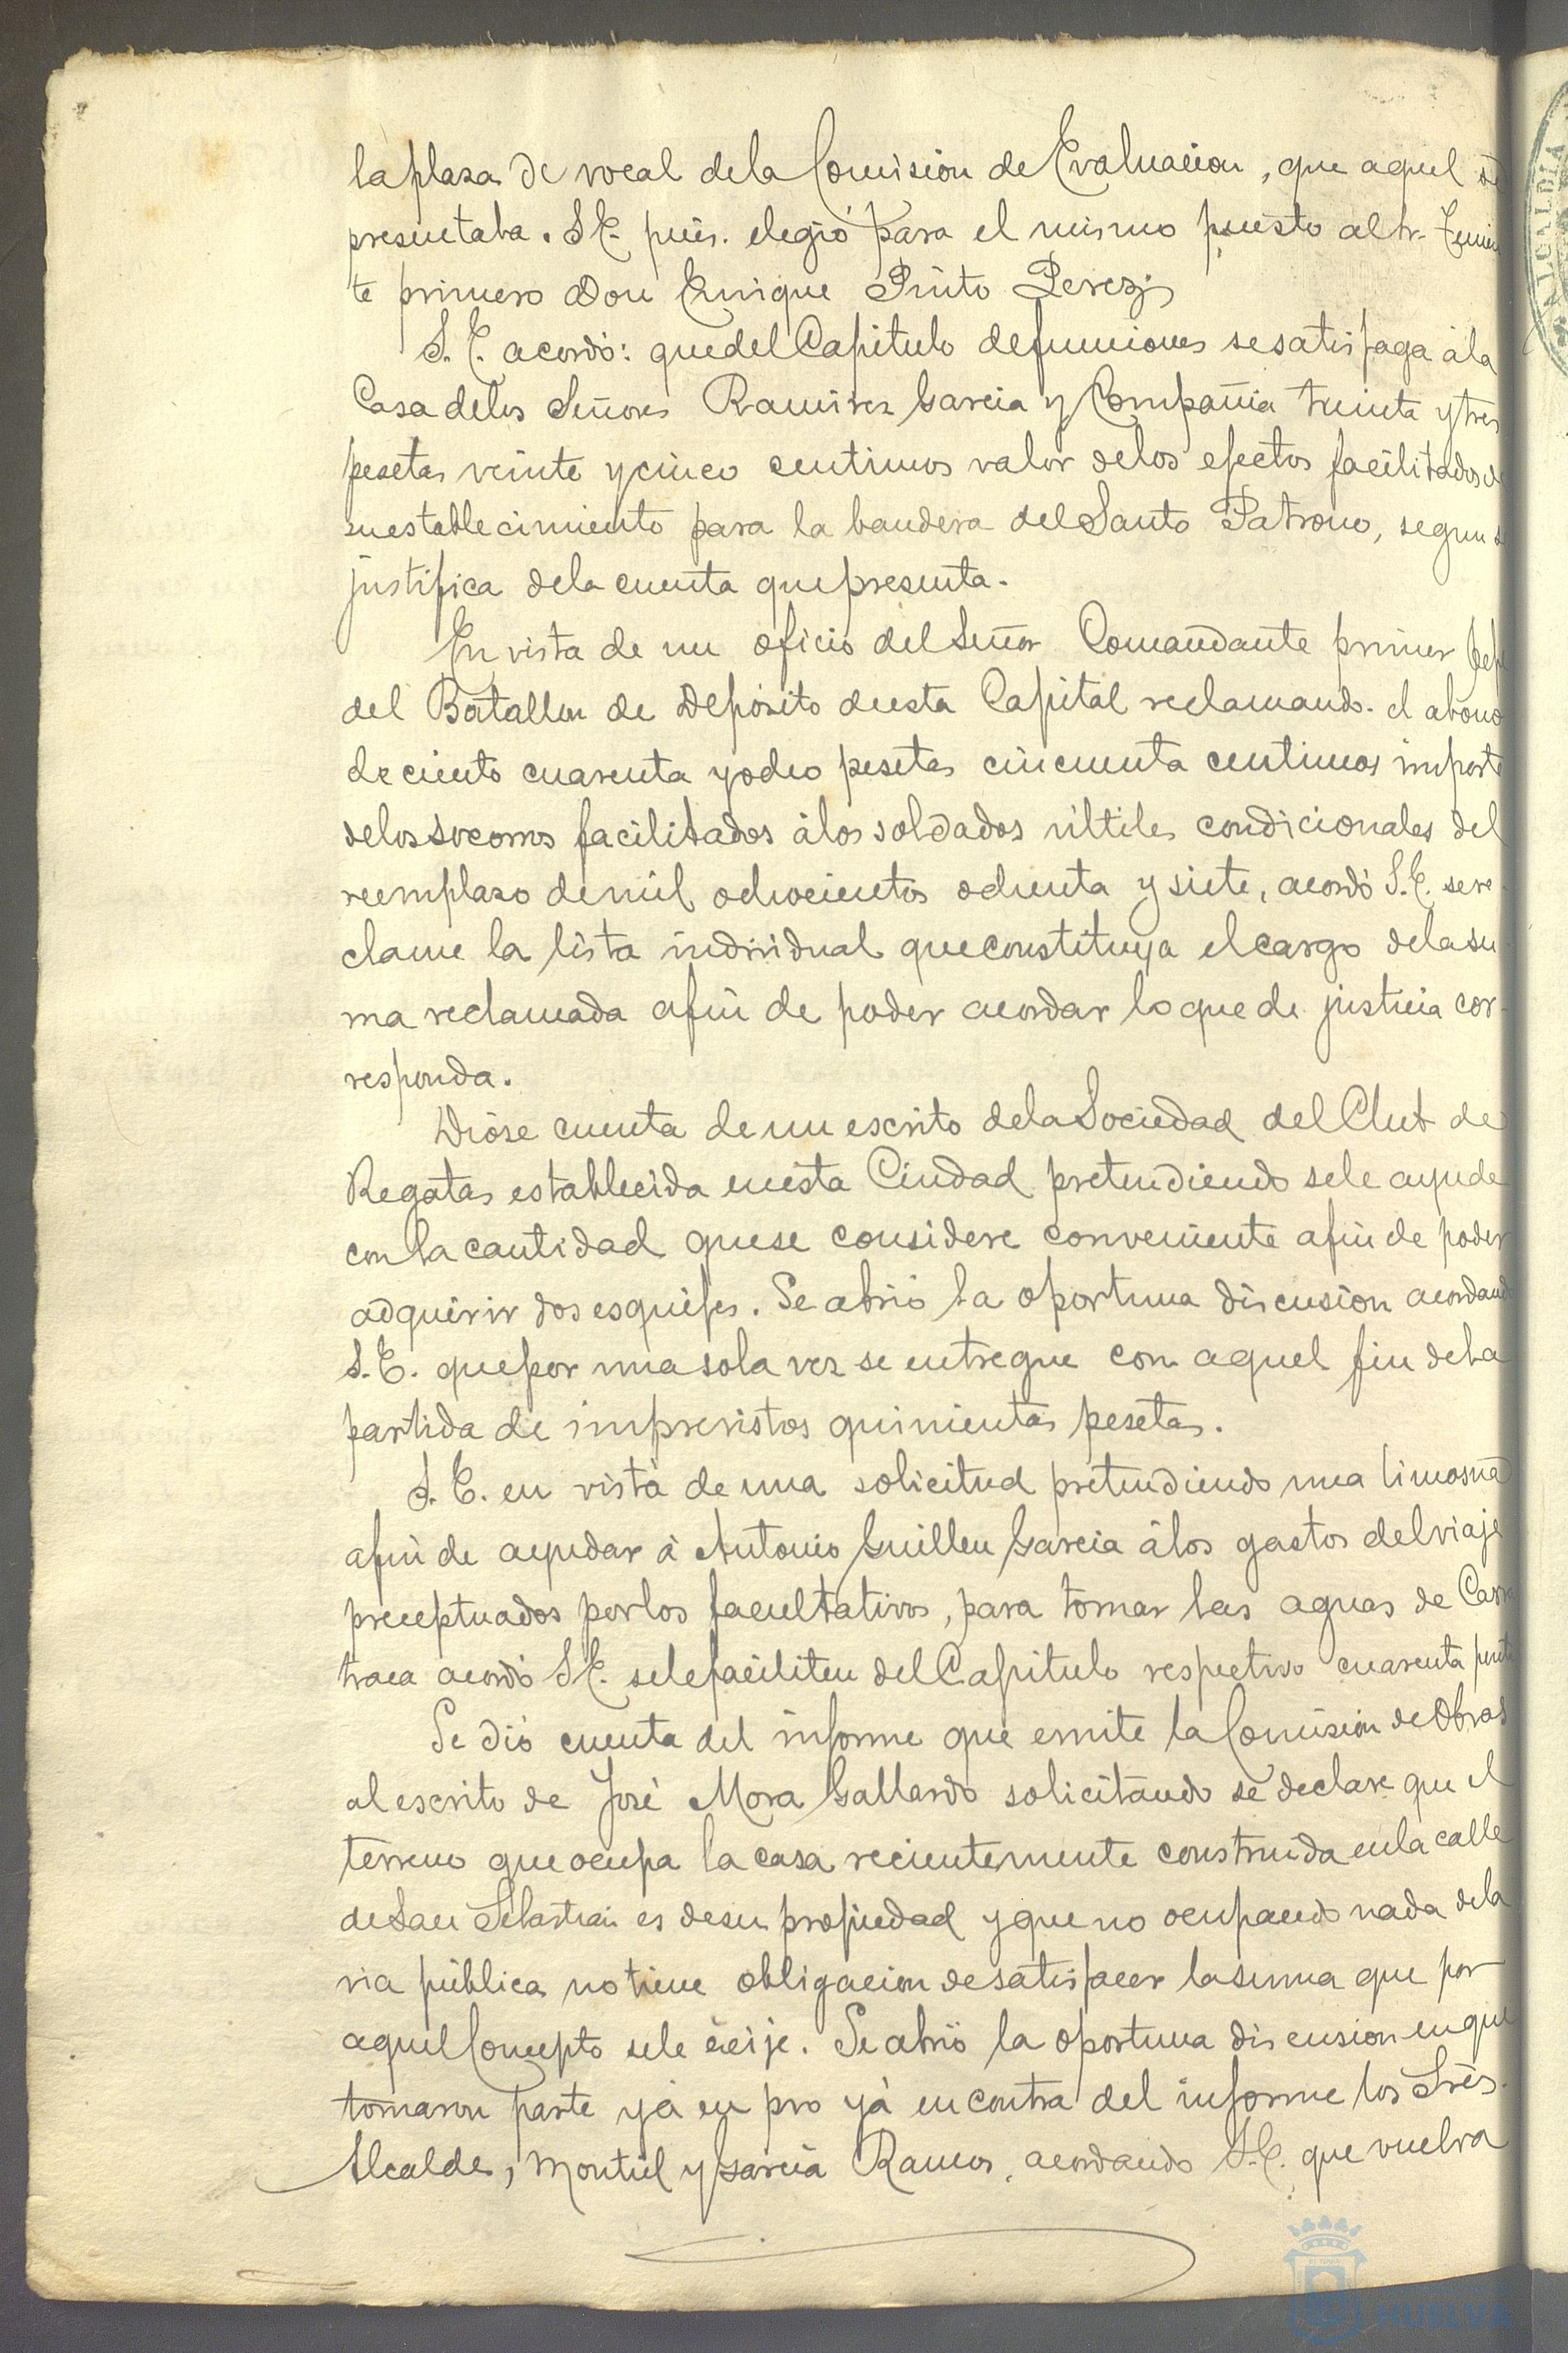 la plaza de vocal dela Comisión de Evaluacion, que aquel
presentaba. S.E. pues. elegió para el mismo puesto al Sr. Tenien
te primero Don Enrique Pinto Perez
S. E. acordó: que del Capitulo defunciones se satisfaga á la
Casa delos Señores Ramirez Garcia y Compañia treinta y tres
pesetas veinte y cinco centimos valor delos efectos facilitados de
su establecimiento para la bandera del Santo Patrono, segun se
justifica dela cuenta que presenta.
En vista de un oficio del Señor Comandante primer Jefe
del Batallon de Depósito de esta Capital reclamando. el abono
de ciento cuarenta y ocho pesetas cincuenta centimos importe
delos socorros facilitados á los soldados útiles condicionales del
reemplazo de mil ochocientos ochenta y siete, acordó S.E. se re-
clame la lista individual que constituya el cargo dela su-
ma reclamada a fin de poder acordar lo que de justicia cor-
responda.
Dióse cuenta de un escrito dela Sociedad del Club de
Regatas establecida en esta Ciudad pretendiendo se le ayude
con la cantidad que se considere conveniente a fin de poder
adquirir dos esquifes. Se abrió la oportuna discusion acordando
S.E. que por una sola vez se entregue con aquel fin dela
partida de imprevistos quinientas pesetas.
S. E. en vista de una solicitud pretendiendo una limosna
a fin de ayudar á Antonio Guillen Garcia á los gastos del viaje
preceptuados por los facultativos, para tomar las aguas de Carra
traca acordó S.E. se le faciliten del Capitulo respectivo cuarenta
Se dió cuenta del informe que emite la Comisión de Obras
al escrito de José Mora Gallardo solicitando se declare que el
terreno que ocupa la casa recientemente construida en la calle
de San Sebastian es de su propiedad y que no ocupando nada dela
via pública no tiene obligacion de satisfacer la suma que por
aquel Concepto se le exije. Se abrió la oportuna discusion en que
tomaron parte yá en pro yá en contra del informe los Sres.
Alcalde, Montiel y Garcia Ramos, acordando S.E. que vuelva
HUELVA
ALCALDIA